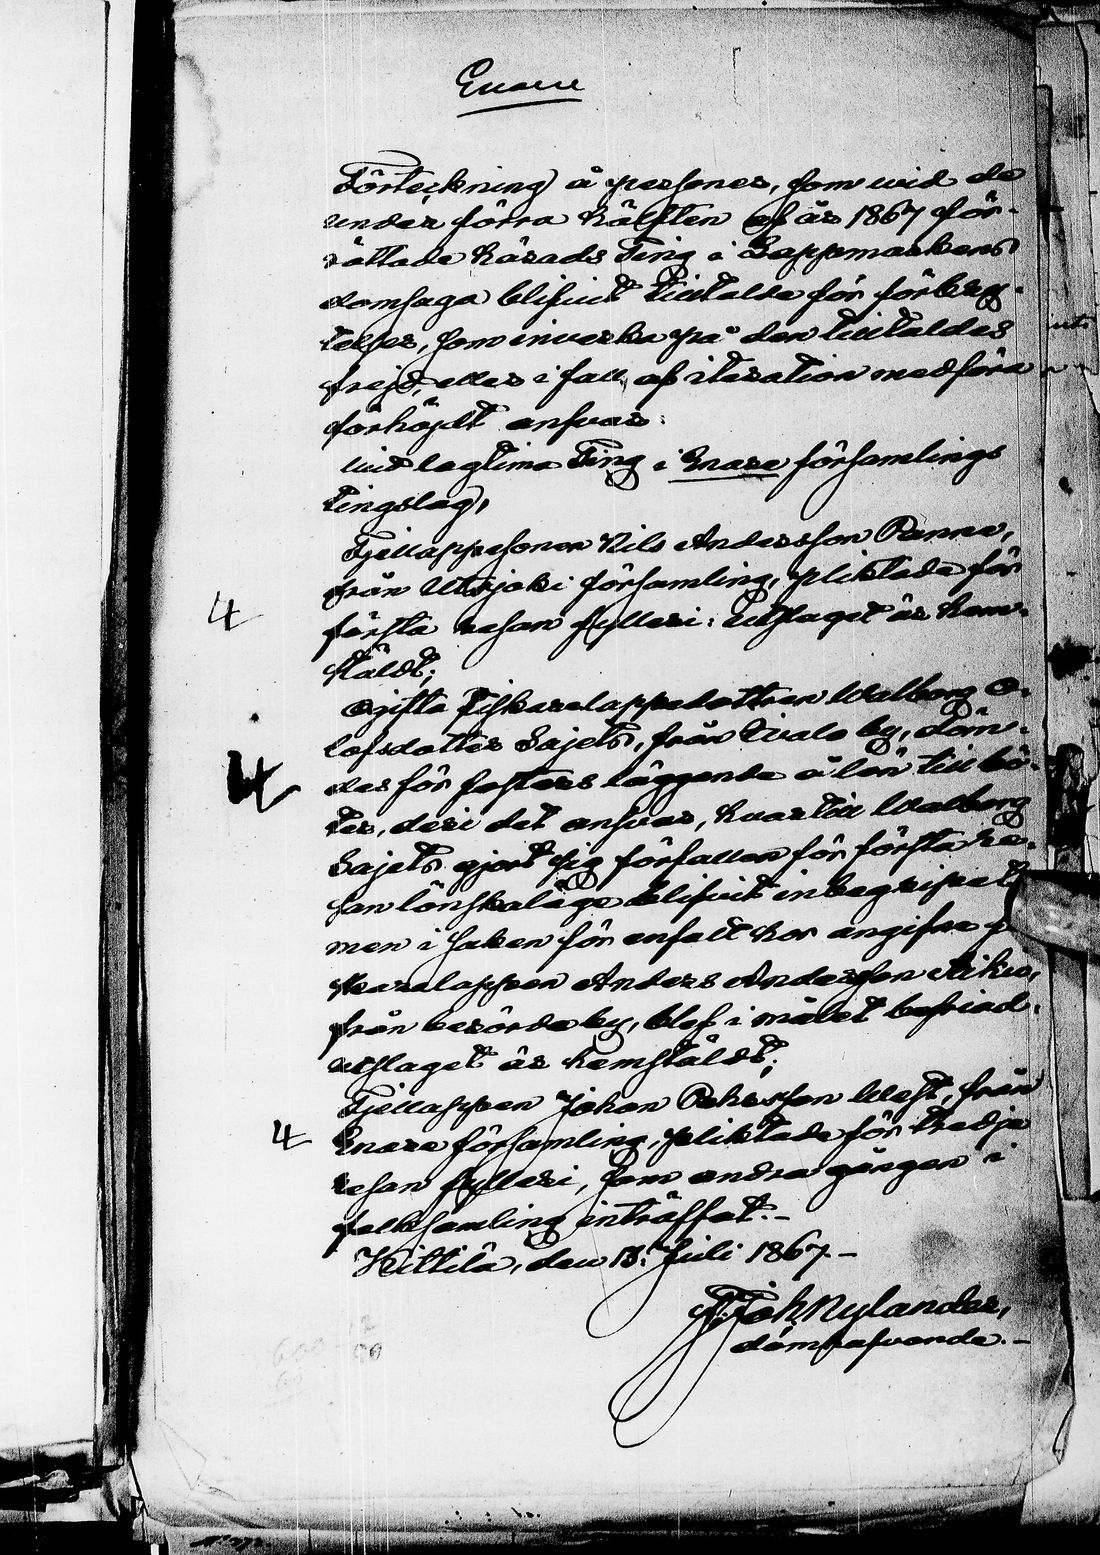 Enare
Förteckning å personer, som wid de
under förra hälften af år 1867 för-
rättade härads Ting i Lappmarkens
domsaga blifvit tilltalde för förbry-
telser, som inverka på den tilltaldes
frejd, eller i fall af iteration medföra
förhöjdt ansvar:
Wid lagtima Ting i Enare församlings
tingslag,
Fjellappesonen Nils Andersson Panne,
från Utsjoki församling, pliktade för
4
första resan fylleri: utslaget är hem-
stäldt;
Ogifta fiskarelappedottren Walborg O-
lofsdotter Sajets, från Ivalo by, döm-
4
des för fosters läggande å lön till bö-
ter, deri det ansvar, hvartill Walborg
Sajets gjort sig förfallen för första re-
san lönskaläge blifvit inbegripet
men i saken för enfalt hor angifne
skarelappen Anders Andersson
från berörde by, blef i målet befriad:
utslaget är hemstäldt;
Fjellappen Johan Pehrsson West, från
4
Enare församling, pliktade för tredje
resan fylleri, som andra gången i
folksamling inträffat.-
Kittilä, den 13. Juli 1867.-
Joh Nylander,
domhafvande.-